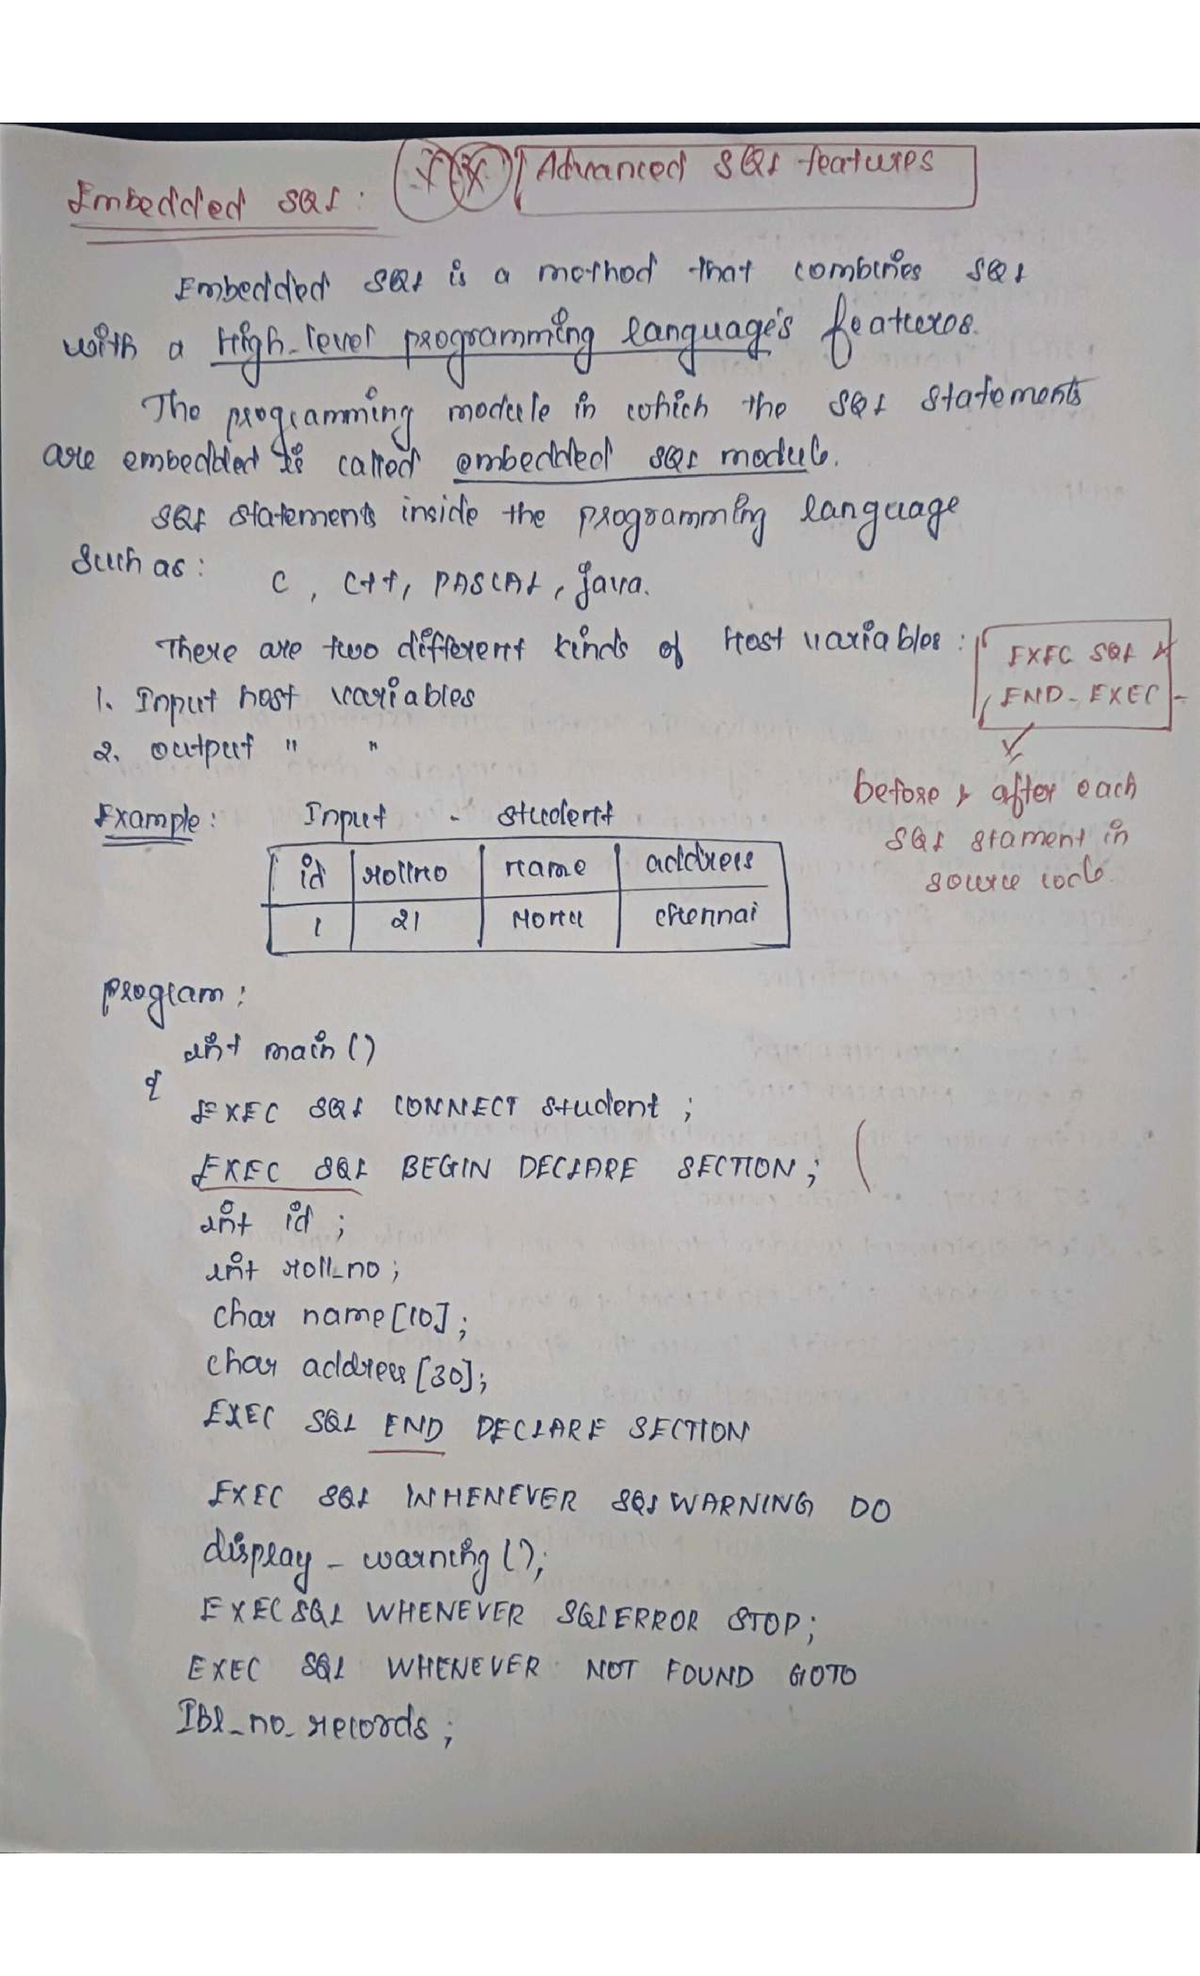 Advanced SQL features
Embedded SQL :
Embedded SQL is a method that combines SQL
with a High-level programming language's features.
The programming module in which the SQL statements
are embedded is called embedded SQL module.
SQL statements inside the programming language
Such as : C, C++, PASCAL, Java.
There are two different kinds of Host variables :
1. Input host variables
2. output " "
EXEC SQL &
END-EXEC
before & after each
SQL stament in
source code.
Example : Input - student
id rollno name address
1 21 chennai
program :
int main ()
{
EXEC SQL CONNECT student ;
EXEC SQL BEGIN DECLARE SECTION ;
int id ;
int roll_no ;
char name [10] ;
char address [30] ;
EXEC SQL END DECLARE SECTION
EXEC SQL WHENEVER SQLWARNING DO
display_warning () ;
EXEC SQL WHENEVER SQLERROR STOP ;
EXEC SQL WHENEVER NOT FOUND GOTO
Ibl_no_records ;